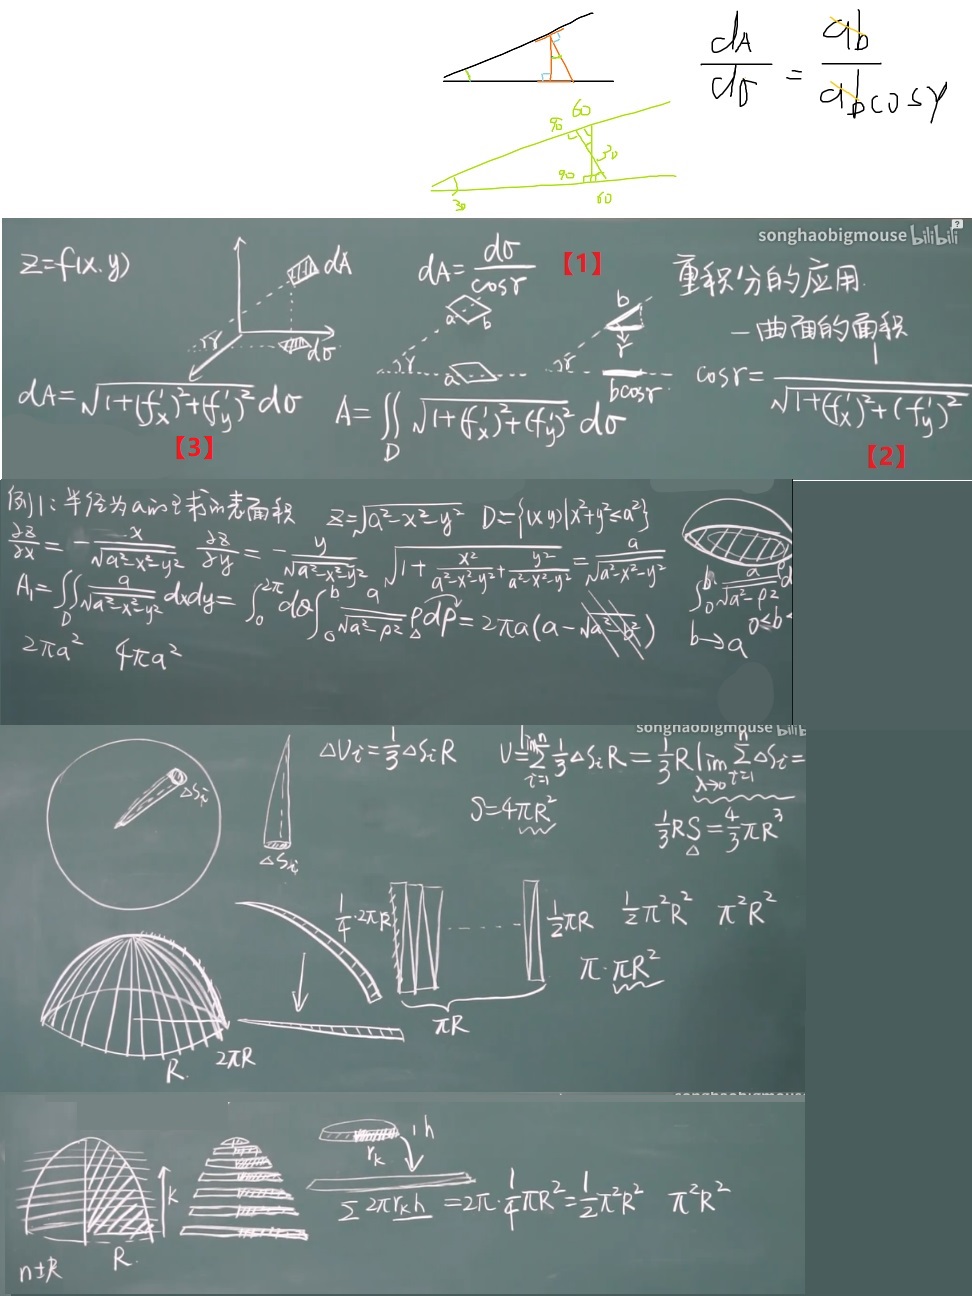 dA/dσ = ab/abcosγ
60
90
30
90
30
60
songhaobigmouse bilibili
z=f(x,y)
dA
dσ
γ
dA=dσ/cosγ 【1】
a b
γ
a
b
γ
γ
bcosγ
重积分的应用
一曲面的面积
cosγ=1/√(1+(f'x)²+(f'y)²)
【2】
dA=√(1+(f'x)²+(f'y)²) dσ
【3】
A=∬_D √(1+(f'x)²+(f'y)²) dσ
例1:半径为a的球的表面积 z=√(a²-x²-y²) D={(x,y)|x²+y²≤a²}
∂z/∂x=-x/√(a²-x²-y²) ∂z/∂y=-y/√(a²-x²-y²) √(1+x²/(a²-x²-y²)+y²/(a²-x²-y²))=a/√(a²-x²-y²)
A₁=∬_D a/√(a²-x²-y²) dxdy=∫₀^2π dθ∫₀^b a/√(a²-ρ²) ρdρ=2πa(a-√(a²-b²))
∫₀^b a/√(a²-ρ²)
0≤b
b→a
2πa² 4πa²
songhaobigmouse bilibili
ΔVᵢ=1/3 ΔSᵢR
V=lim Σ_{i=1}^n 1/3 ΔSᵢR=1/3 R lim_{λ→0} Σ_{i=1}^n ΔSᵢ=
ΔSᵢ
S=4πR²
1/3 RS=4/3 πR³
ΔSᵢ
1/4·2πR
1/2 πR
1/2 π²R² π²R²
π·πR²
πR
2πR
R
songhaobigmouse
h
r_k
k
Σ 2πr_k h =2π·1/4 πR²=1/2 π²R² π²R²
R
n±R